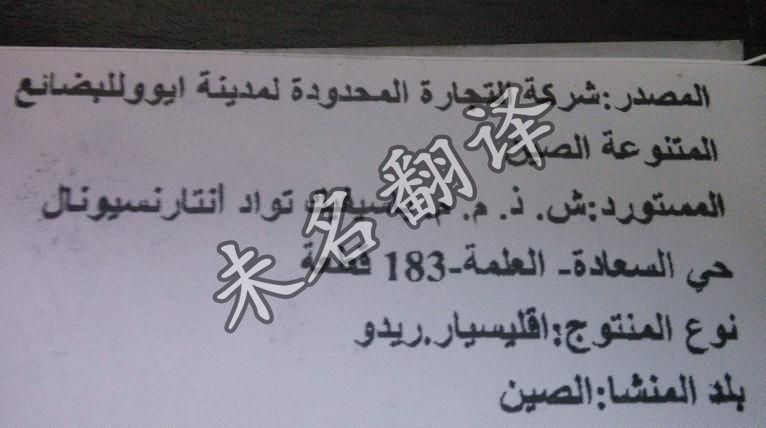 المصدر:شركة التجارة المحدودة لمدينة ايووللبضائع
المتنوعة الصين
المستورد:ش. ذ. م. م تواد أنتارنسيونال
حي السعادة- العلمة-183 قطعة
نوع المنتوج:اقليسيار.ريدو
بلد المنشا:الصين
未名翻译